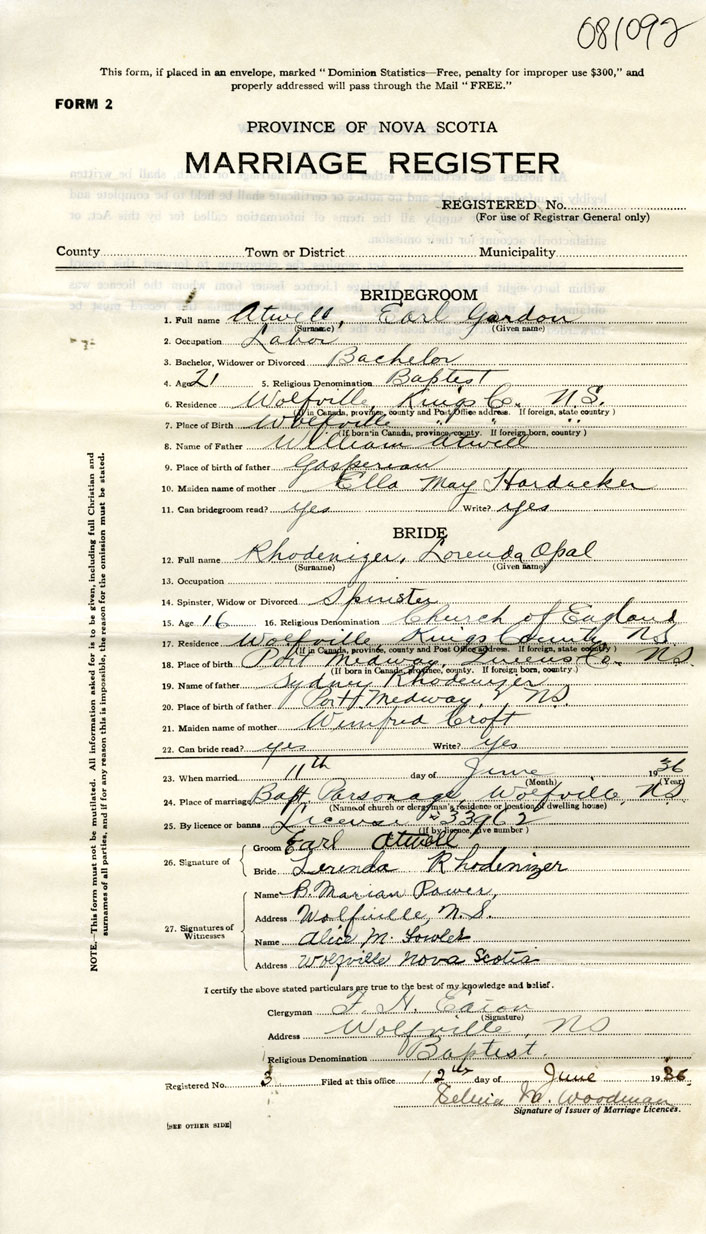 081092
This form, if placed in an envelope, marked "Dominion Statistics—Free, penalty for improper use $300," and
properly addressed will pass through the Mail "FREE."
FORM 2
PROVINCE OF NOVA SCOTIA
MARRIAGE REGISTER
REGISTERED No.
(For use of Registrar General only)
County Town or District Municipality
BRIDEGROOM
1. Full name Atwell, Earl Gordon
(Surname) (Given name)
2. Occupation Labor
3. Bachelor, Widower or Divorced Bachelor
4. Age 21 5. Religious Denomination Baptist
6. Residence Wolfville, Kings Co. N.S.
(If in Canada, province, county and Post Office address. If foreign, state country)
7. Place of Birth Wolfville " " "
(If born in Canada, province, county. If foreign born, country)
8. Name of Father William Atwell
9. Place of birth of father Gasperian
10. Maiden name of mother Ella May Hardacker
11. Can bridegroom read? yes Write? yes
BRIDE
12. Full name Rhodenizer, Lorenda Opal
(Surname) (Given name)
13. Occupation
14. Spinster, Widow or Divorced Spinster
15. Age 16 16. Religious Denomination Church of England
17. Residence Wolfville, Kings County, N.S.
(If in Canada, province, county and Post Office address. If foreign, state country)
18. Place of birth Port Medway, Co. N.S.
(If born in Canada, province, county. If foreign born, country.)
19. Name of father Sydney Rhodenizer
20. Place of birth of father Port Medway, N.S.
21. Maiden name of mother Winifred Croft
22. Can bride read? yes Write? yes
23. When married 11th day of June 1936
(Month) (Year)
24. Place of marriage Bapt Parsonage, Wolfville, N.S.
(Name of church or clergyman's residence or location of dwelling house)
25. By licence or banns License #33962
(If by licence, give number)
26. Signature of
Groom Earl Atwell
Bride Lerinda Rhodenizer
27. Signatures of Witnesses
Name B. Marian Power,
Address Wolfville, N.S.
Name Alice M. Fowler
Address Wolfville Nova Scotia
I certify the above stated particulars are true to the best of my knowledge and belief.
Clergyman F. H. Eaton
(Signature)
Address Wolfville, NS
Religious Denomination Baptist.
Registered No. 3 Filed at this office 12th day of June 1936.
M. Woodman
Signature of Issuer of Marriage Licences.
[SEE OTHER SIDE]
NOTE.—This form must not be mutilated. All information asked for is to be given, including full Christian and
surnames of all parties, and if for any reason this is impossible, the reason for the omission must be stated.